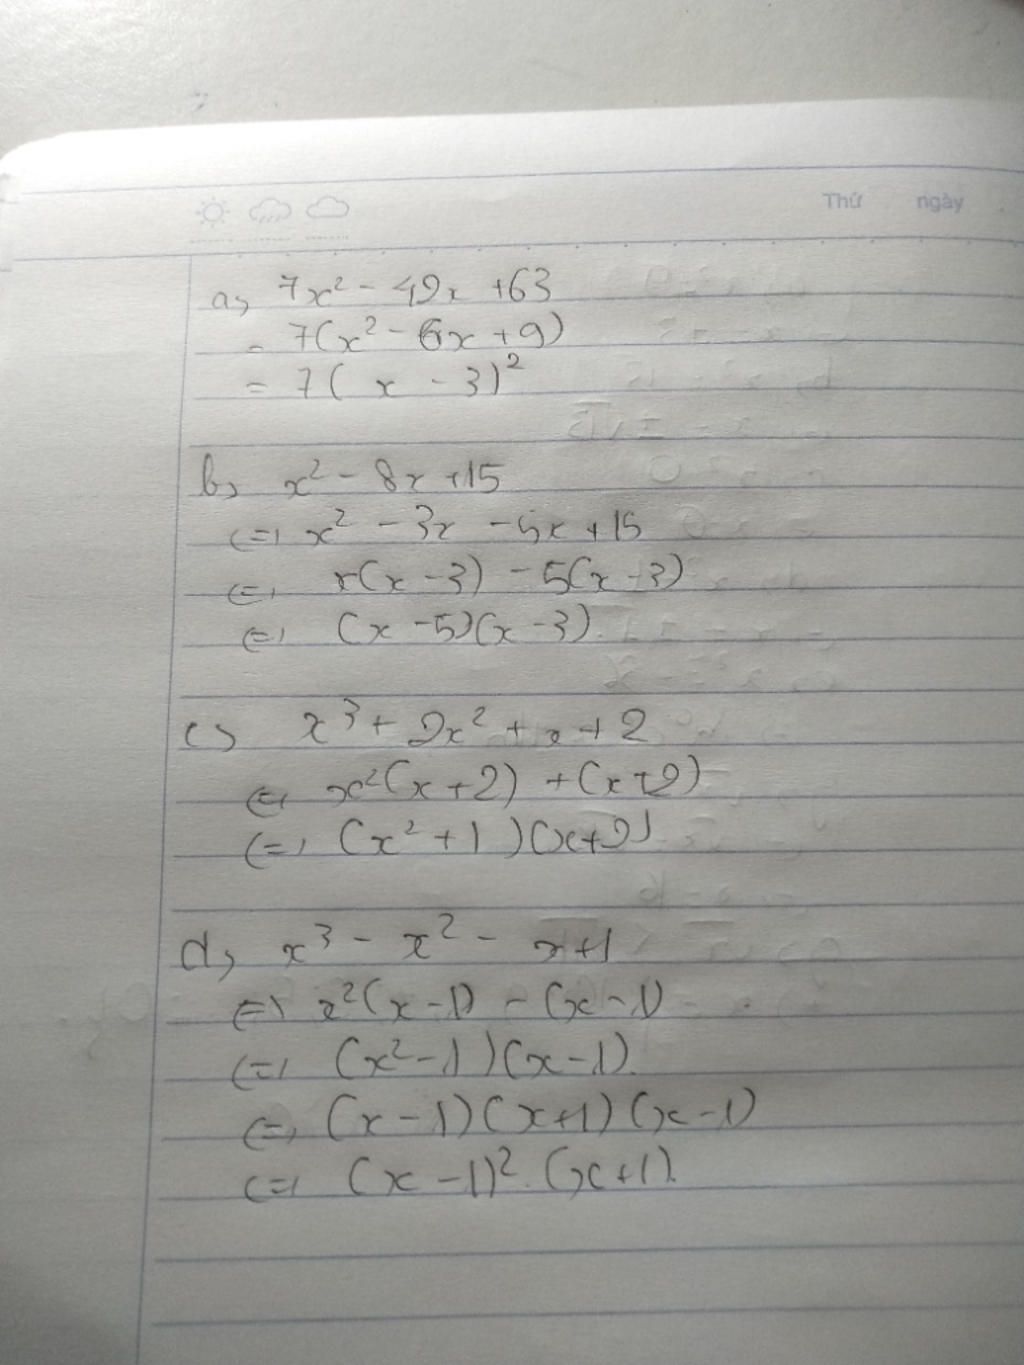 Thứ ngày
a, 7x² - 42x + 63
= 7(x² - 6x + 9)
= 7(x - 3)²
b, x² - 8x + 15
<=> x² - 3x - 5x + 15
<=> x(x - 3) - 5(x - 3)
<=> (x - 5)(x - 3).
c, x³ + 2x² + x + 2
<=> x²(x + 2) + (x + 2)
<=> (x² + 1)(x + 2).
d, x³ - x² - x + 1
<=> x²(x - 1) - (x - 1)
<=> (x² - 1)(x - 1).
<=> (x - 1)(x + 1)(x - 1)
<=> (x - 1)².(x + 1).